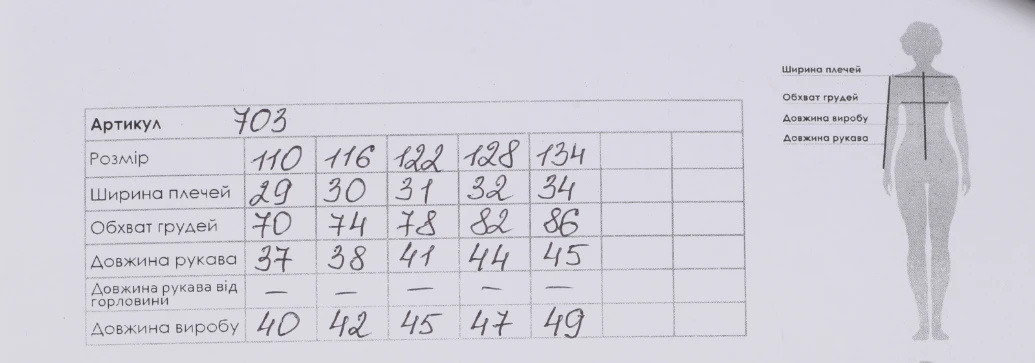 Артикул 703
Розмір 110 116 122 128 134
Ширина плечей 29 30 31 32 34
Обхват грудей 70 74 78 82 86
Довжина рукава 37 38 41 44 45
Довжина рукава від
горловини — — — — —
Довжина виробу 40 42 45 47 49
Ширина плечей
Обхват грудей
Довжина виробу
Довжина рукава